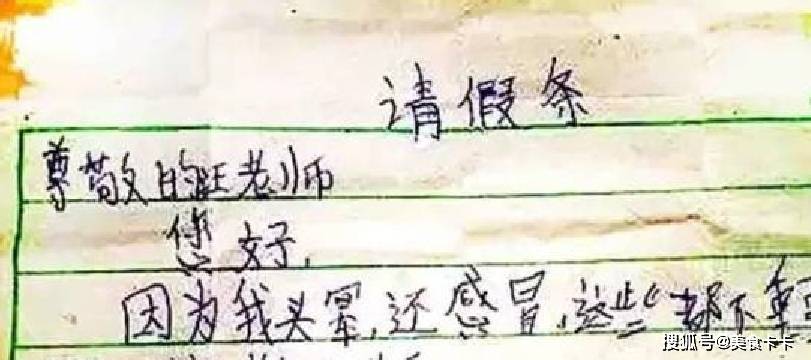 请假条
尊敬的汪老师
您好,
因为我头晕,还感冒,这些都不
搜狐号@美食卡卡